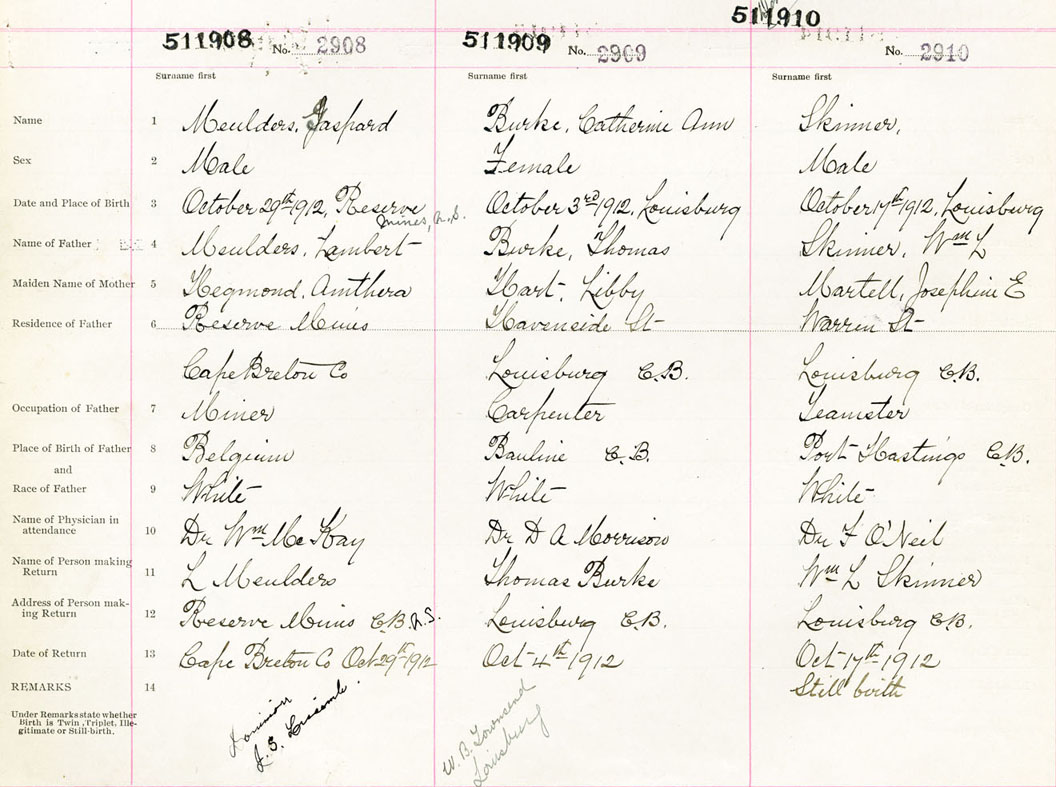 511908 No. 2908 511909 No. 2909 511910 No. 2910
Surname first Surname first Surname first
Name 1 Meulders, Gaspard Burke, Catherine Ann Skinner,
Sex 2 Male Female Male
Date and Place of Birth 3 October 29th 1912, Reserve October 3rd 1912, Louisburg October 17th 1912, Louisburg
Mines, N.S.
Name of Father 4 Meulders, Lambert Burke, Thomas Skinner, Wm L
Maiden Name of Mother 5 Hegmond, Amthera Hart, Libby Martell, Josephine E
Residence of Father 6 Reserve Mines Havenside St Warren St
Cape Breton Co Louisburg C.B. Louisburg C.B.
Occupation of Father 7 Miner Carpenter Teamster
Place of Birth of Father 8 Belgium Bauline C.B. Port Hastings C.B.
and
Race of Father 9 White White White
Name of Physician in
attendance 10 Dr Wm Mc Kay Dr D A Morrison Dr F O'Neil
Name of Person making
Return 11 L Meulders Thomas Burke Wm L Skinner
Address of Person mak-
ing Return 12 Reserve Mines C.B. N.S. Louisburg C.B. Louisburg C.B.
Date of Return 13 Cape Breton Co Oct 29th 1912 Oct 4th 1912 Oct 17th 1912
REMARKS 14 Still birth
Under Remarks state whether
Birth is Twin, Triplet, Ille-
gitimate or Still-birth.
Dominion
J. S.
W. B. Townsend
Louisburg